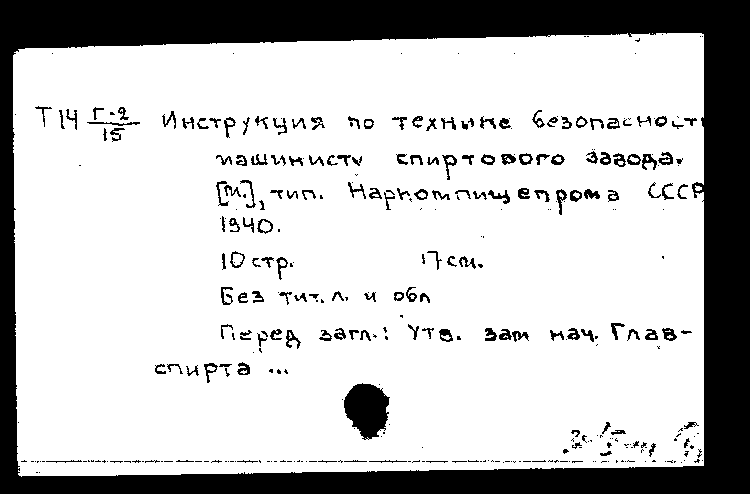 Т14 Г-2/15 Инструкция по технике безопасности
машинисту спиртового завода.
[М.], тип. Наркомпищепрома СССР
1940.
10 стр. 17 см.
Без тит. л. и обл
Перед загл.: Утв. зам нач. Глав-
спирта ...